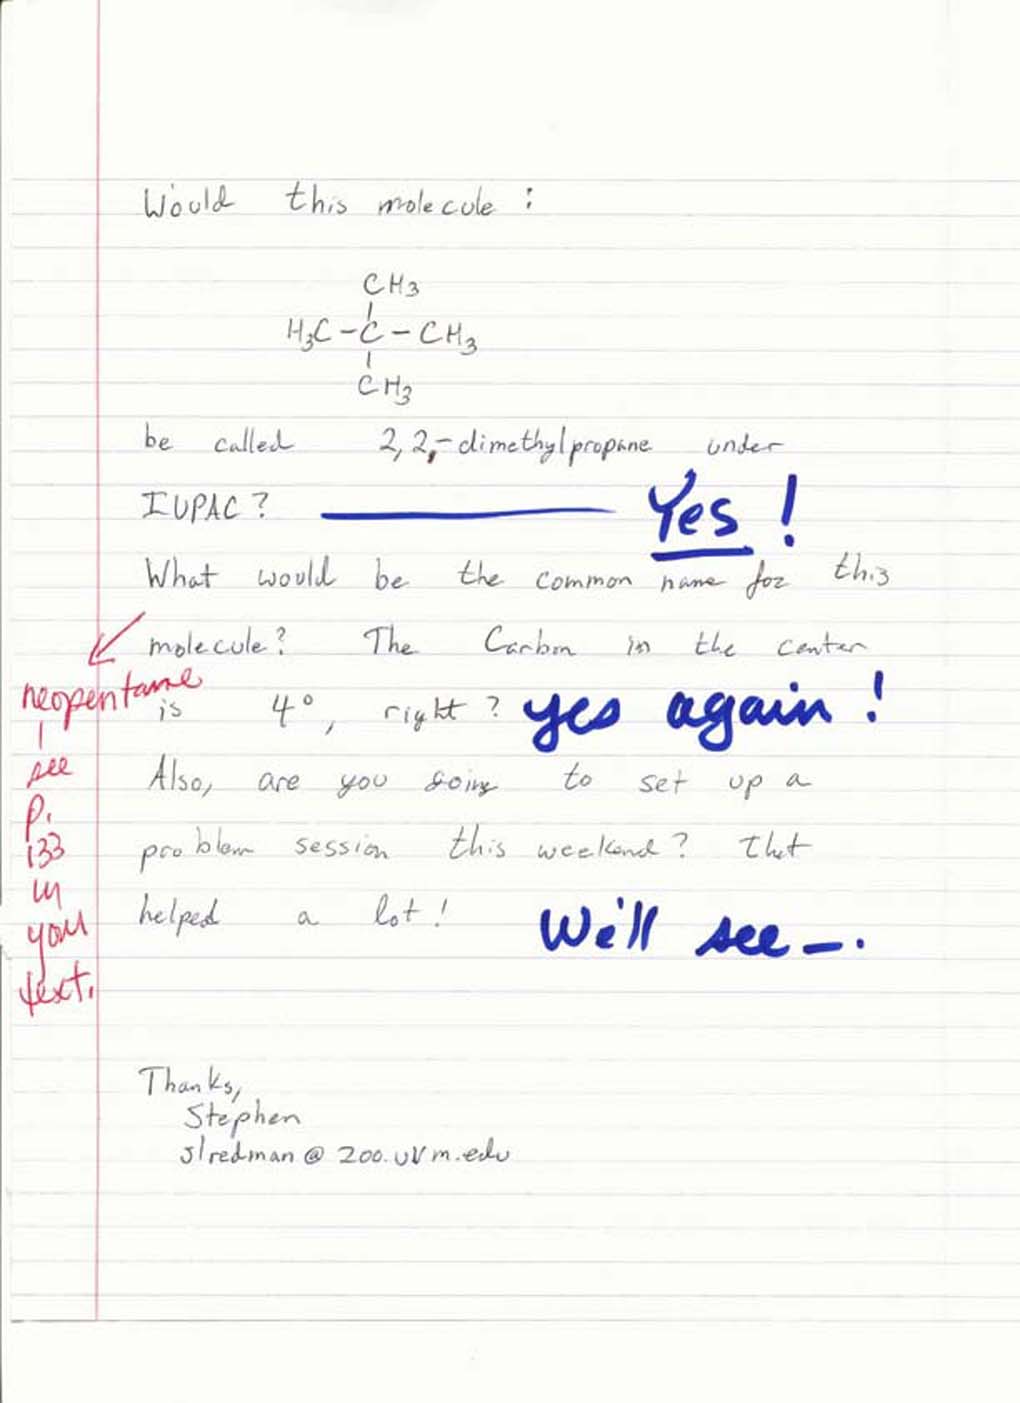 Would this molecule :
CH3
H3C - C - CH3
CH3
be called 2,2,-dimethylpropane under
IUPAC? Yes !
What would be the common name for this
molecule? The Carbon in the center
neopentane
is 4°, right? yes again !
see
p.
133
in
your
text.
Also, are you going to set up a
problem session this weekend? That
helped a lot! We'll see —.
Thanks,
Stephen
slredman @ zoo.uvm.edu